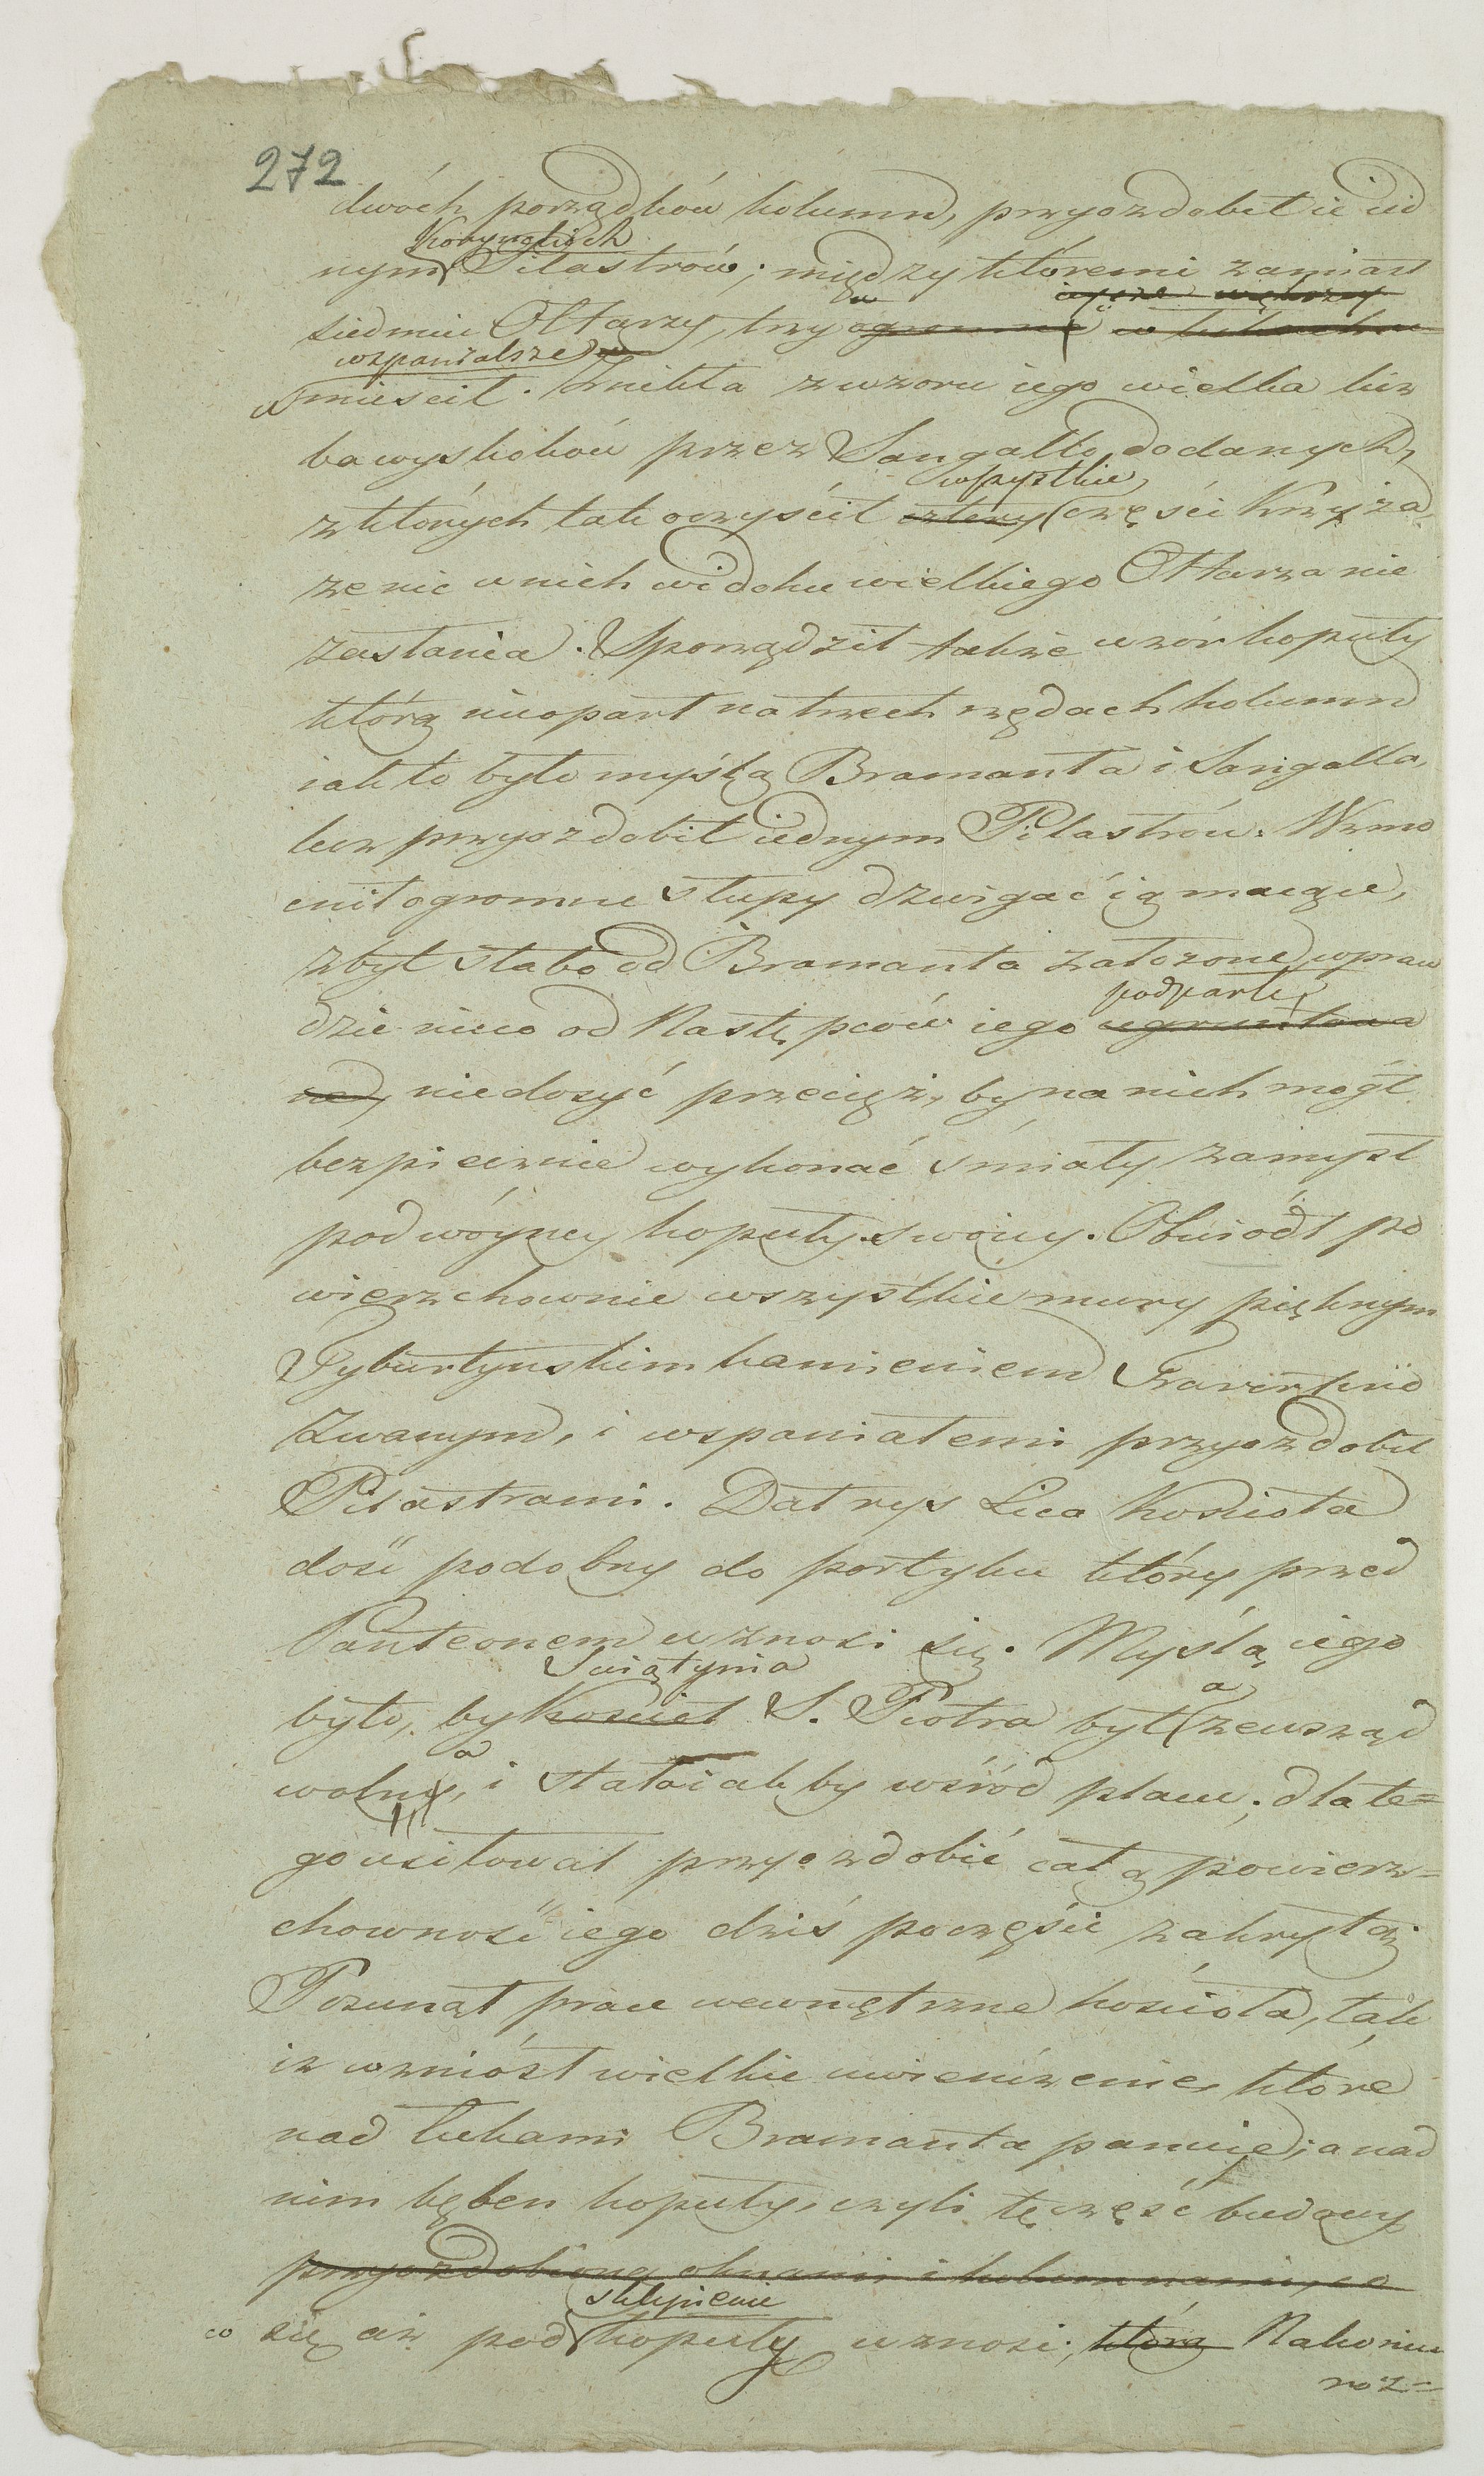 272
dwóch porządków kolumn, przyozdobił ie ied
Korynckich
nym Pilastrów; między któremi zamiast
siedmiu Ołtarzy, trzy ogromne w łukach u
wspanialsze
mieścił. Znikła z wzoru iego wielka licz
ba wyskoków przez Sangallo dodanych,
wszystkie
z których tak oczyścił cztery części Krzyża
że nic w nich widoku wielkiego Ołtarza nie
zasłania. Sporządził także wzór kopuły
którą nieoparł na trzech rzędach kolumn
iak to było myślą Bramanta i Sangalla,
lecz przyozdobił iednym Pilastrów. Wzmo
cnił ogromne słupy dzwigać ią maiące,
zbyt słabo od Bramanta założone, wpraw
podparte,
dzie nieco od Następców iego ugruntowa
ne, niedosyć przecięż, by na nich mógł
bezpiecznie wykonać śmiały zamysł
podwóyney kopuły swoiey. Obwiódł po
wierzchownie wszystkie mury pięknym
Tyburtynskim kamieniem Trawertino
zwanym, i wspaniałemi przyozdobił
Pilastrami. Dał rys Lica Kościoła
dość podobny do portyku który przed
Panteonem wznosi się. Myślą iego
Swiątynia
było, by Kościoł S. Piotra był a zewsząd
wolny a, i stała iakby wśród placu; dlate=
go usiłował przyozdobić całą powierz=
chowność iego dziś poczęści zakrytą.
Posunął prace wewnętrzne kościoła, tak
iż wzniósł wielkie uwieńczenie, które
nad łukami Bramanta panuie; a nad
nim bęben kopuły, czyli tę część budowy
przyozdobioną oknami i kolumnami, co
sklepienie
co się aż pod kopuły wznosi; którą Nakoniec
roz=